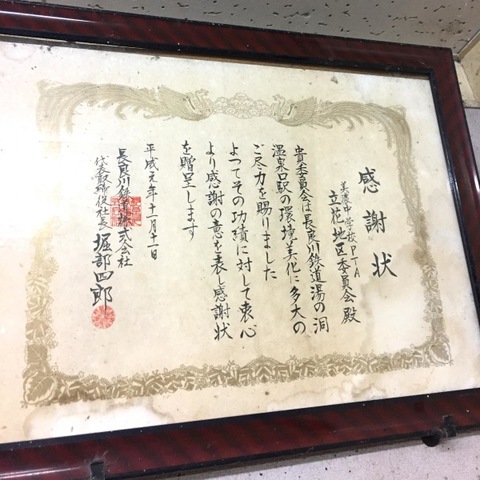 感謝状
美濃中学校PTA
立花地区委員会殿
貴委員会は長良川鉄道湯の洞
温泉口駅の環境美化に多大の
ご尽力を賜りました
よつてその功績に対して衷心
より感謝の意を表し感謝状
を贈呈します
平成元年十一月十一日
長良川鉄道株式会社
代表取締役社長 堀部四郎